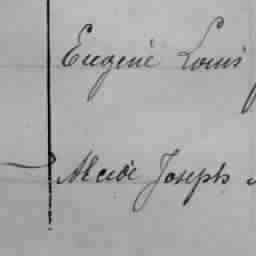 Eugène Louis
Alcide Joseph